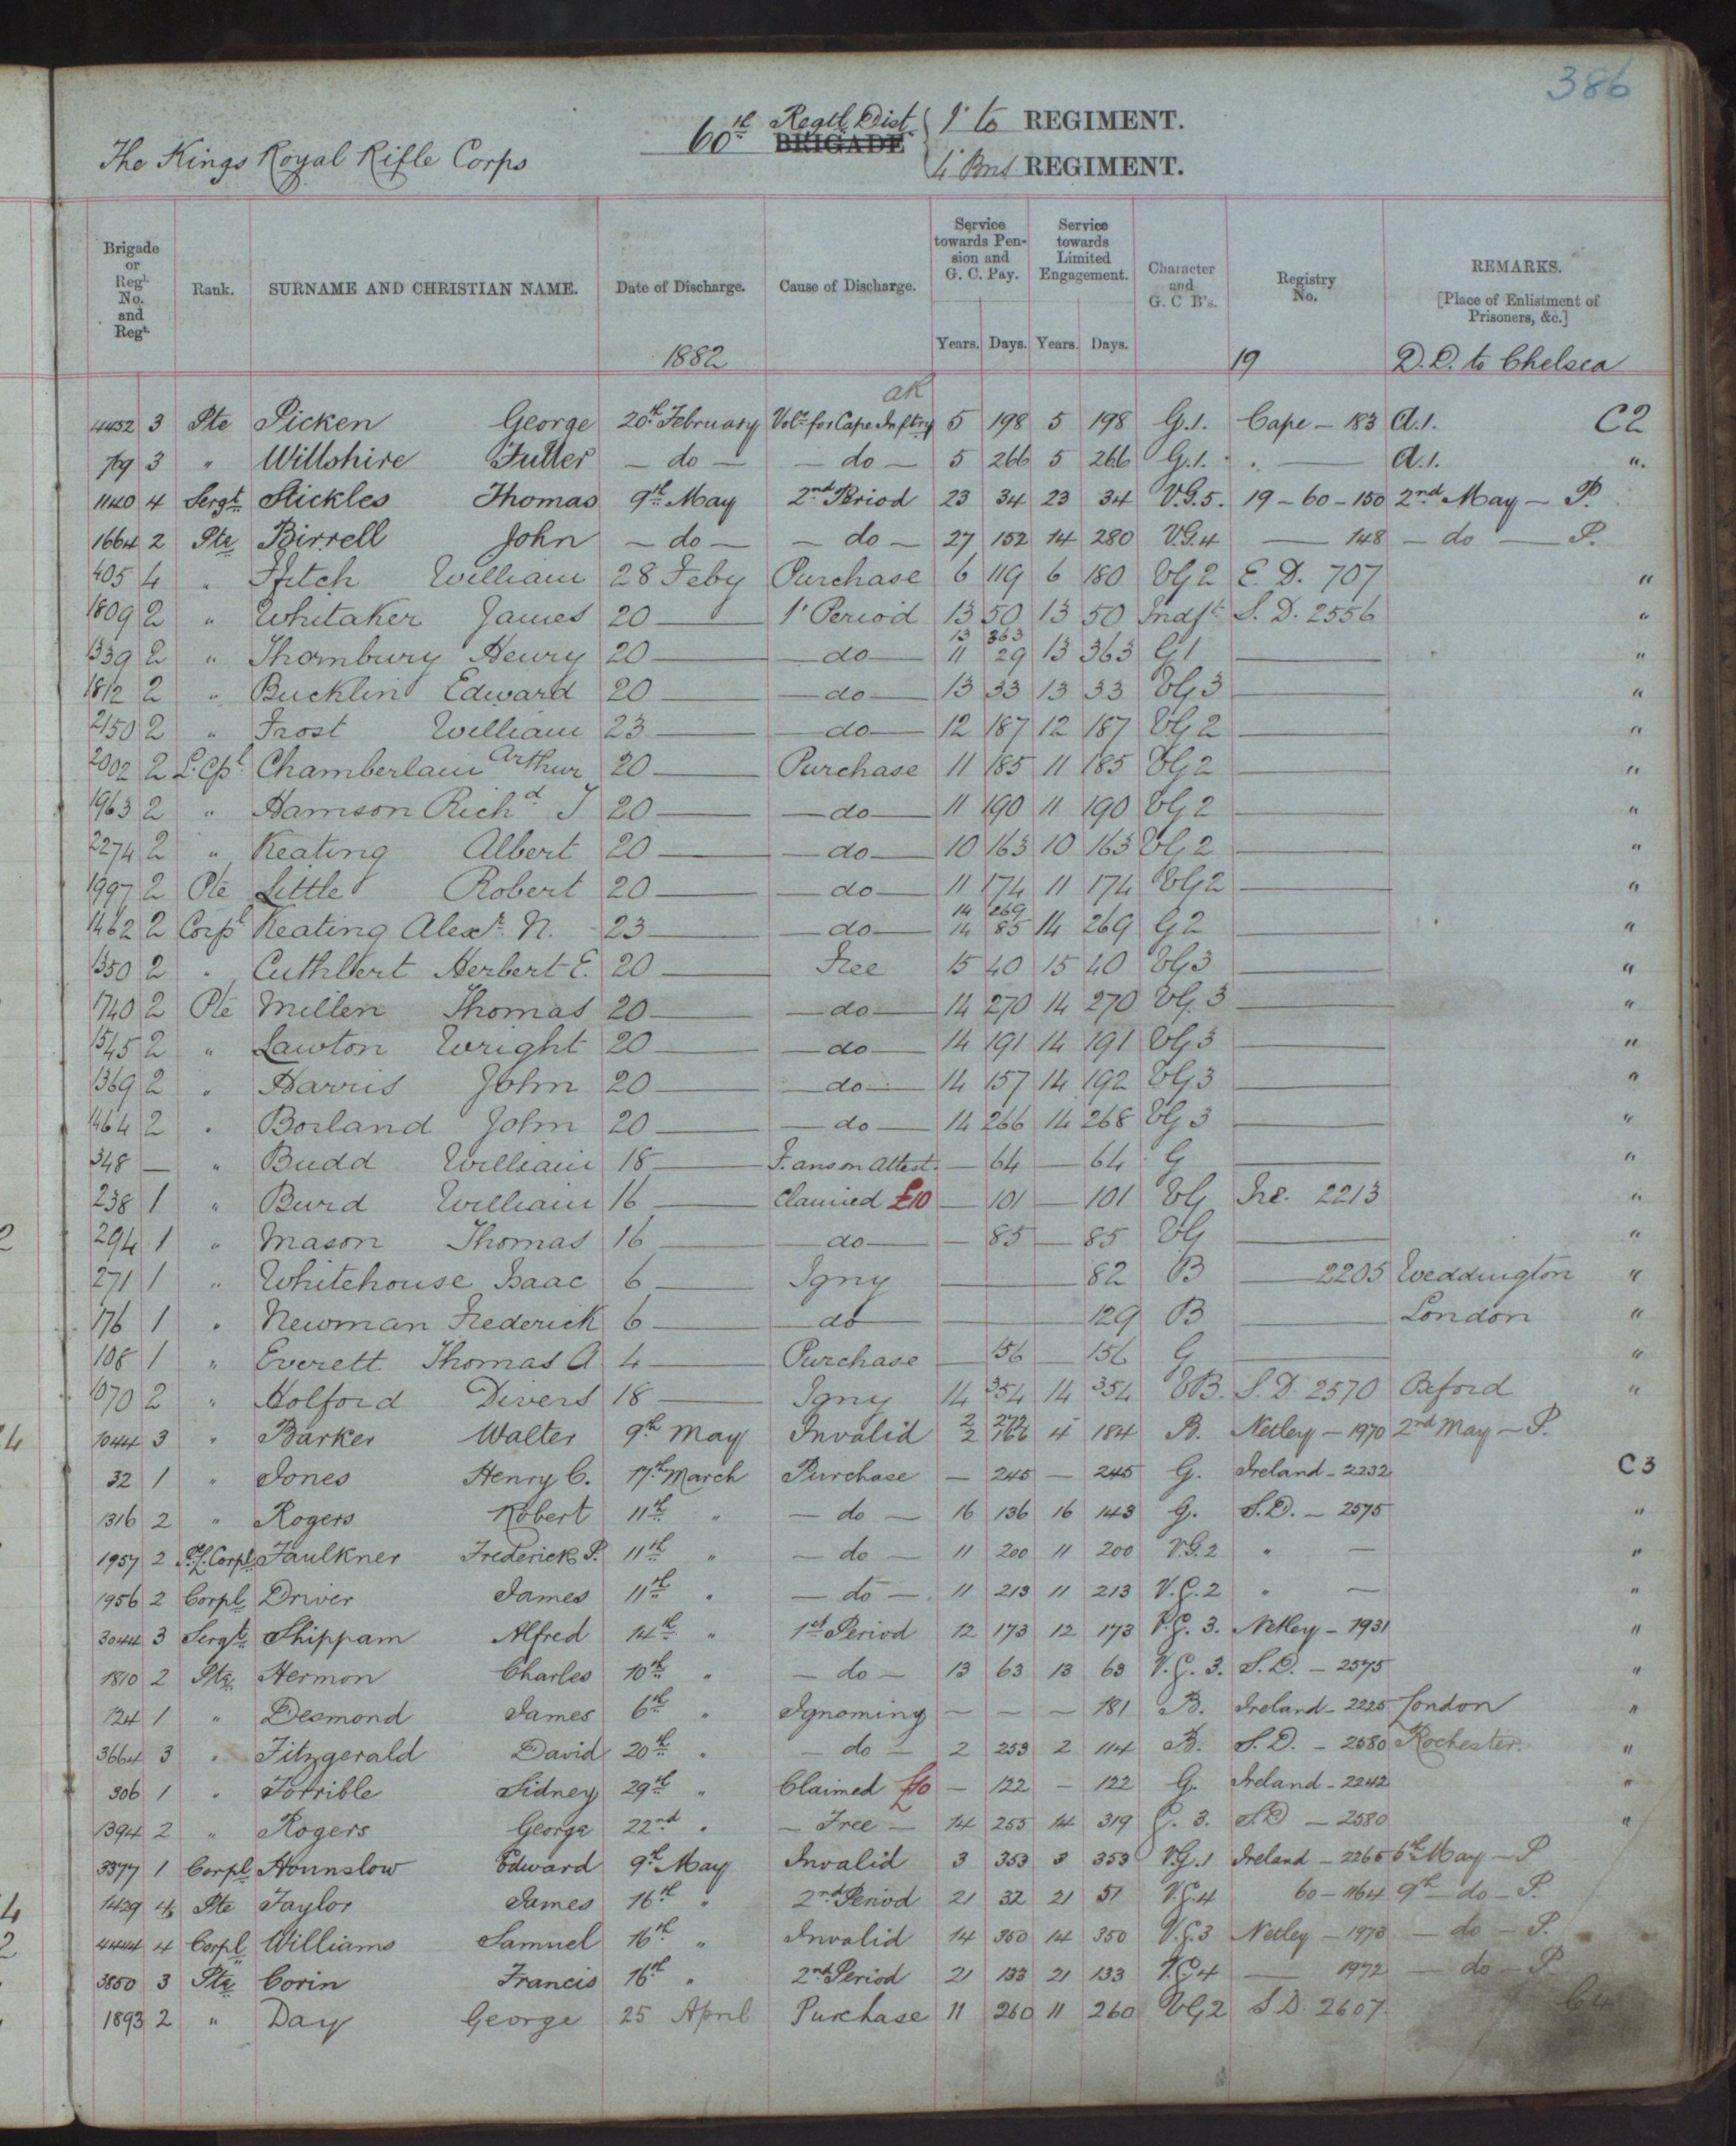 386
The Kings Royal Rifle Corps 60th Regtl Dist. BRIGADE { 1st to REGIMENT.
4th Bns REGIMENT.
Brigade or Regl. No. and Regt. Rank. SURNAME AND CHRISTIAN NAME. Date of Discharge. Cause of Discharge. Service towards Pension and G. C. Pay. Service towards Limited Engagement. Character and G. C B's. Registry No. REMARKS. [Place of Enlistment of Prisoners, &c.]
Years. Days. Years. Days.
1882 19 D.D. to Chelsea
4432 3 Pte Picken George 20th February Vol. for Cape Inftry 5 198 5 198 G.1. Cape – 183 A.1. C2
769 3 " Willshire Fuller – do – – do – 5 266 5 266 G.1. " — A.1. "
1140 4 Sergt Stickles Thomas 9th May 2nd Period 23 34 23 34 V.G.5. 19 – 60 – 150 2nd May – P.
1664 2 Pte Birrell John – do – – do – 27 152 14 280 V.G.4 — 148 – do — P.
405 4 " Ffitch William 28 Feby Purchase 6 119 6 180 VG2 E.D. 707 "
1809 2 " Whitaker James 20 — 1st Period 13 50 13 50 Indft S.D. 2556 "
1339 2 " Thornbury Henry 20 — – do – 13 363 11 29 13 363 G1 — "
1812 2 " Bucklin Edward 20 — – do – 13 33 13 33 VG3 — "
2150 2 " Frost William 23 — – do – 12 187 12 187 VG2 — "
2002 2 L. Cpl Chamberlain Arthur 20 — Purchase 11 185 11 185 VG2 — "
1963 2 " Hamson Richd J 20 — – do – 11 190 11 190 VG2 — "
2274 2 " Keating Albert 20 — – do – 10 163 10 163 VG2 — "
1997 2 Pte Little Robert 20 — – do – 11 174 11 174 VG2 — "
1462 2 Corpl Keating Alexr. N. 23 — – do – 14 269 14 85 14 269 G2 — "
1350 2 " Cuthbert Herbert E. 20 — Free 15 40 15 40 VG3 — "
1740 2 Pte Millen Thomas 20 — – do – 14 270 14 270 VG3 — "
1545 2 " Lawton Wright 20 — – do – 14 191 14 191 VG3 — "
1369 2 " Harris John 20 — – do – 14 157 14 192 VG3 — "
1464 2 " Borland John 20 — – do – 14 266 14 268 VG3 — "
348 — " Budd William 18 — F. ans on Attest. — 64 — 64 G — "
238 1 " Burd William 16 — Claimed £10 — 101 — 101 VG Ire. 2213 "
294 1 " Mason Thomas 16 — – do – — 85 — 85 VG — "
271 1 " Whitehouse Isaac 6 — Igny — 82 B — 2205 Weddington "
176 1 " Newman Frederick 6 — do — 129 B — London "
108 1 " Everett Thomas A 4 — Purchase — 156 — 156 G — "
1070 2 " Holford Divers 18 — Igny 14 354 14 354 VB. S.D. 2570 Oxford "
1044 3 " Barker Walter 9th May Invalid 2 272 2 166 4 184 B. Netley – 1970 2nd May – P.
32 1 " Jones Henry C. 17th March Purchase – 245 – 245 G. Ireland – 2232 C3
1316 2 " Rogers Robert 11th " – do – 16 136 16 143 G. S.D. – 2575 "
1957 2 Corpl Faulkner Frederick P. 11th " – do – 11 200 11 200 V.G.2 " — "
1956 2 Corpl Driver James 11th " – do – 11 213 11 213 V.G.2 " — "
3044 3 Sergt Shippam Alfred 14th " 1st Period 12 173 12 173 V.G.3. Netley – 1931 "
1810 2 Pte Hermon Charles 10th " – do – 13 63 13 63 V.G.3. S.D. – 2575 "
124 1 " Desmond James 6th " Ignominy – – – 181 B. Ireland – 2225 London "
3664 3 " Fitzgerald David 20th " – do – 2 253 2 114 B. S.D. – 2580 Rochester. "
306 1 " Torrible Sidney 29th " Claimed £10 – 122 – 122 G. Ireland – 2242 "
1394 2 " Rogers George 22nd " – Free – 14 255 14 319 G. 3. S.D – 2580 "
3377 1 Corpl Hounslow Edward 9th May Invalid 3 353 3 353 V.G.1 Ireland – 2265 6th May – P
1429 4 Pte Taylor James 16th " 2nd Period 21 32 21 51 V.G.4 60 – 1164 9th – do – P.
4444 4 Corpl Williams Samuel 16th " Invalid 14 350 14 350 V.G.3 Netley – 1973 – do – P.
3850 3 Pte Corin Francis 16th " 2nd Period 21 133 21 133 V.G.4 — 1972 – do – P
1893 2 " Day George 25 April Purchase 11 260 11 260 VG2 S.D. 2607 C4